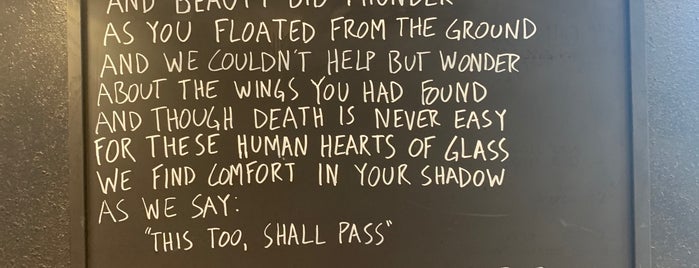 AND BEAUTY DID THUNDER
AS YOU FLOATED FROM THE GROUND
AND WE COULDN'T HELP BUT WONDER
ABOUT THE WINGS YOU HAD FOUND
AND THOUGH DEATH IS NEVER EASY
FOR THESE HUMAN HEARTS OF GLASS
WE FIND COMFORT IN YOUR SHADOW
AS WE SAY:
"THIS TOO, SHALL PASS"